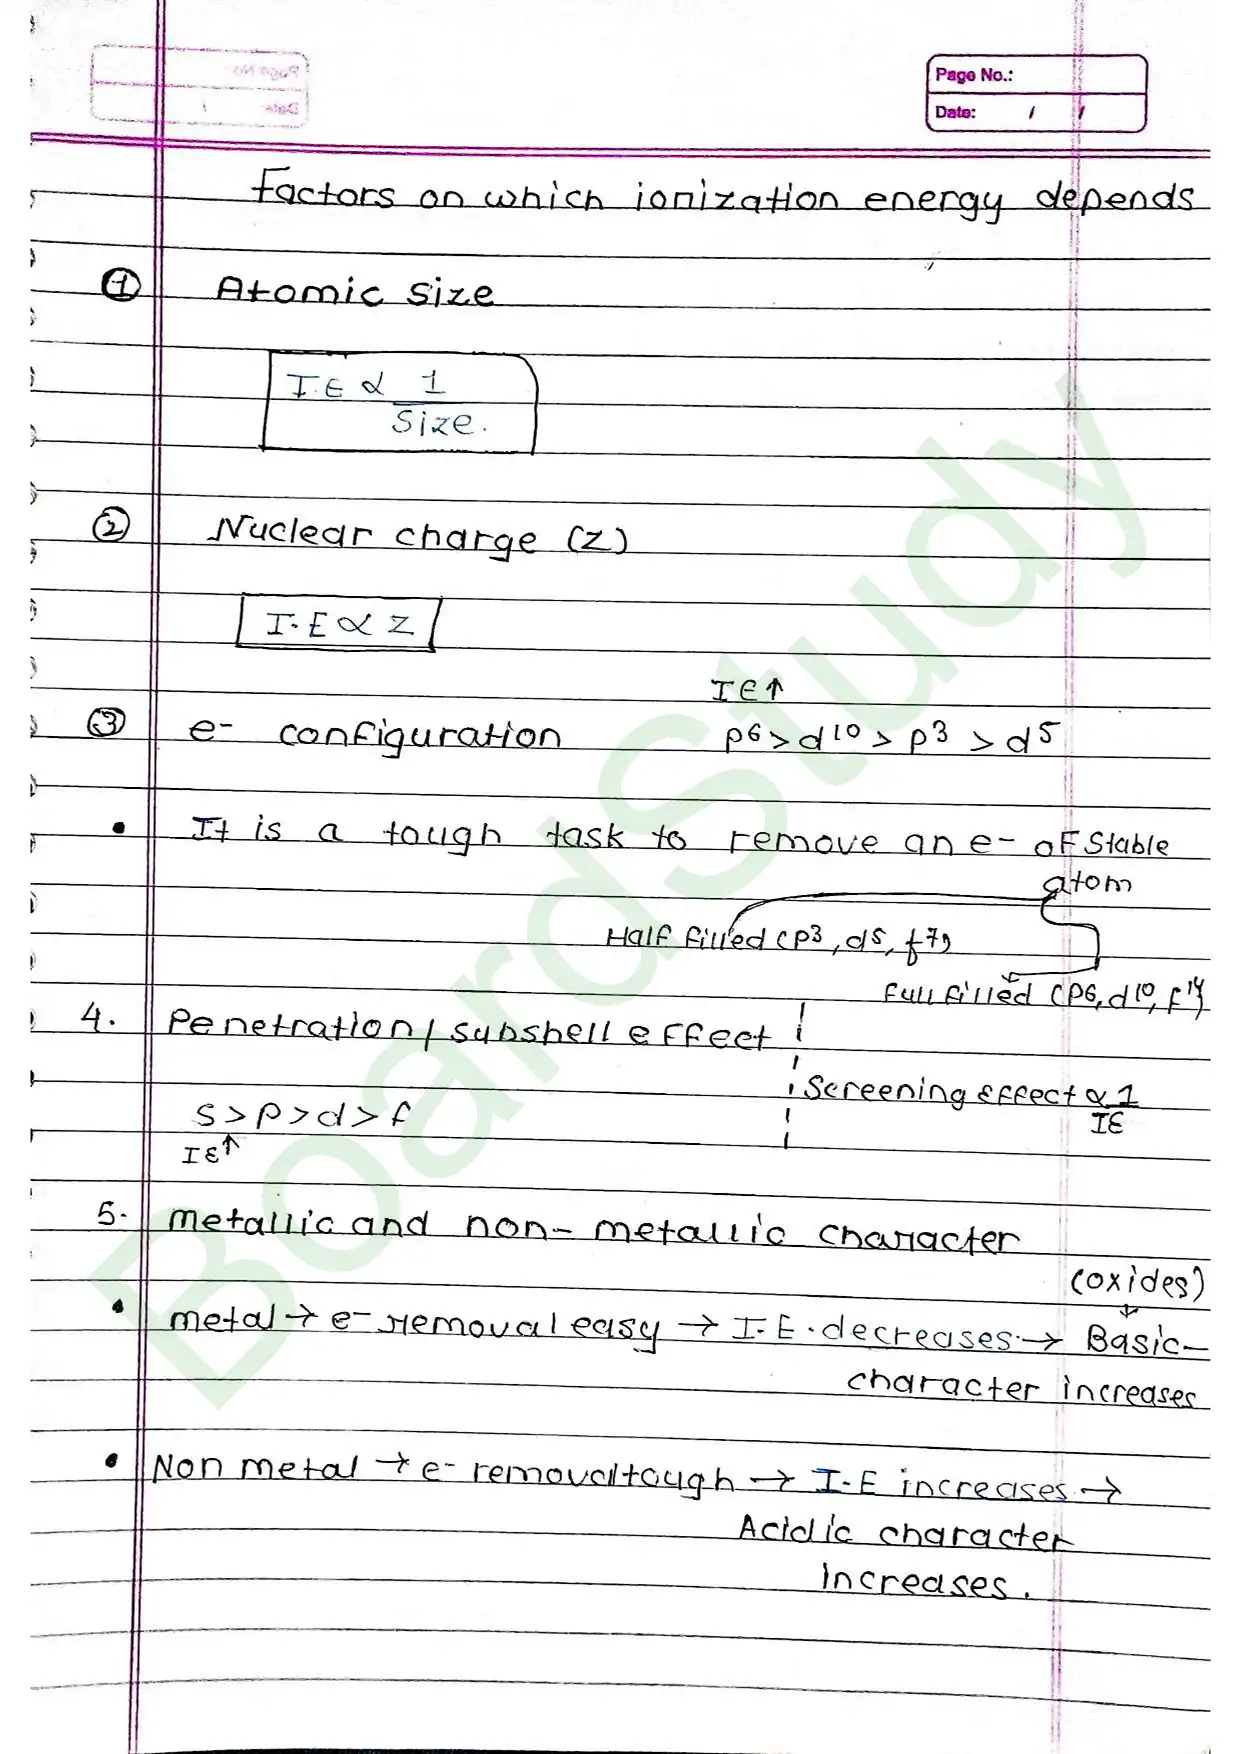 Page No.:
Date: / /
Factors on which ionization energy depends
① Atomic size
I.E ∝ 1
Size.
② Nuclear charge (Z)
I.E ∝ Z
IE↑
③ e- configuration p6 > d10 > p3 > d5
• It is a tough task to remove an e- of stable
atom
Half filled (p3, d5, f7)
Full filled (p6, d10, f14)
4. Penetration / subshell effect
Screening effect ∝ 1
IE
s > p > d > f
IE↑
5. metallic and non-metallic character
(oxides)
• metal → e- removal easy → I.E. decreases → Basic-
character increases
• Non metal → e- removal tough → I.E increases →
Acidic character
increases.
BoardStudy